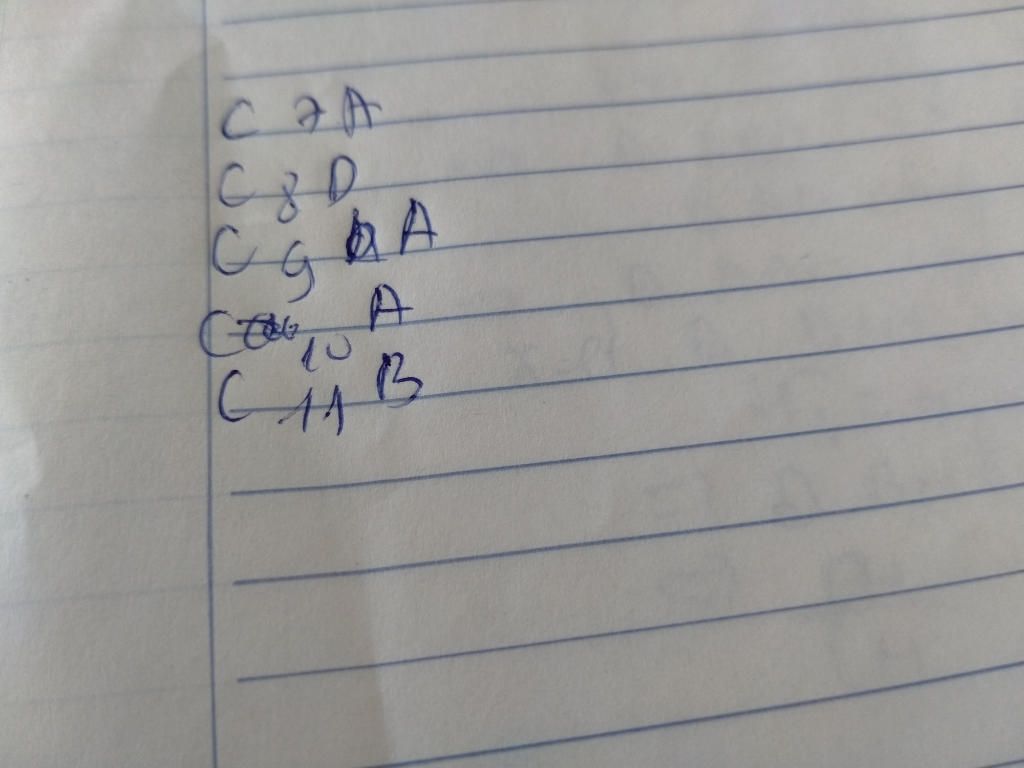 C 7 A
C 8 D
C 9 A
C 10 A
C 11 B